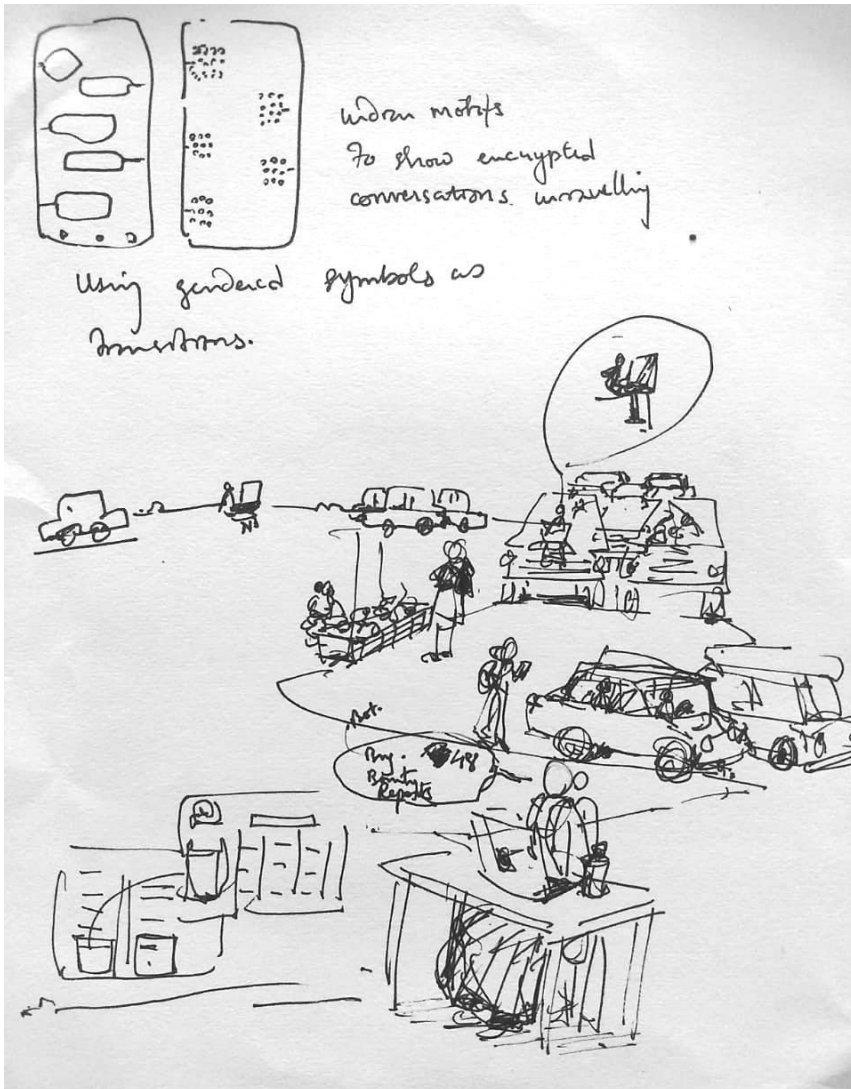 Indian motifs
To show encrypted
conversations. unravelling
Using gendered symbols as
transitions.
Bot.
Bug. 48
Bounty
Reports